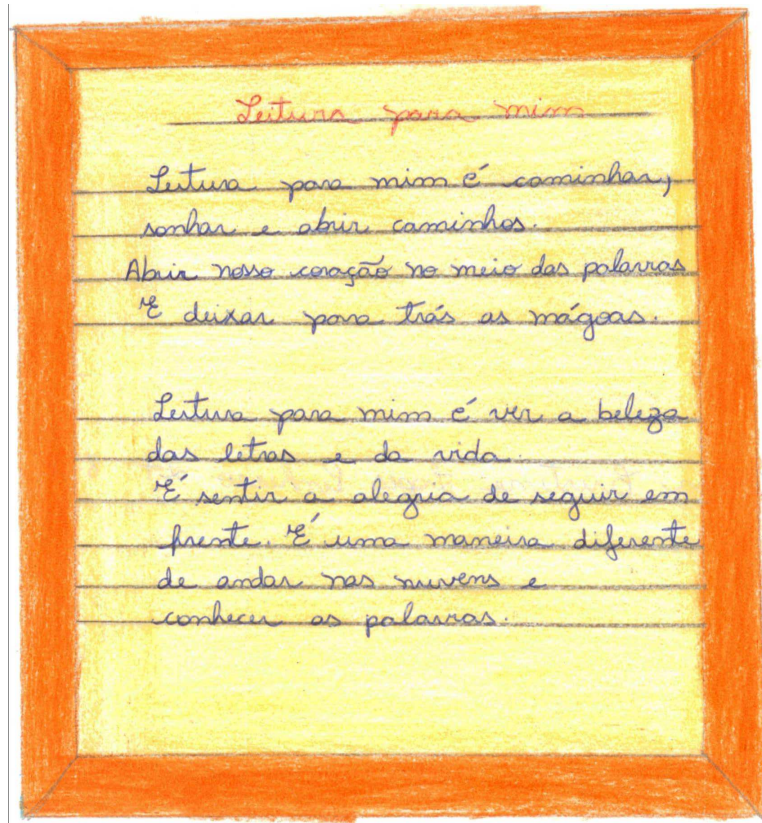 Leitura para mim
Leitura para mim é caminhar,
sonhar e abrir caminhos.
Abrir nosso coração no meio das palavras
E deixar para trás as mágoas.
Leitura para mim é ver a beleza
das letras e da vida.
É sentir a alegria de seguir em
frente. É uma maneira diferente
de andar nas nuvens e
conhecer as palavras.